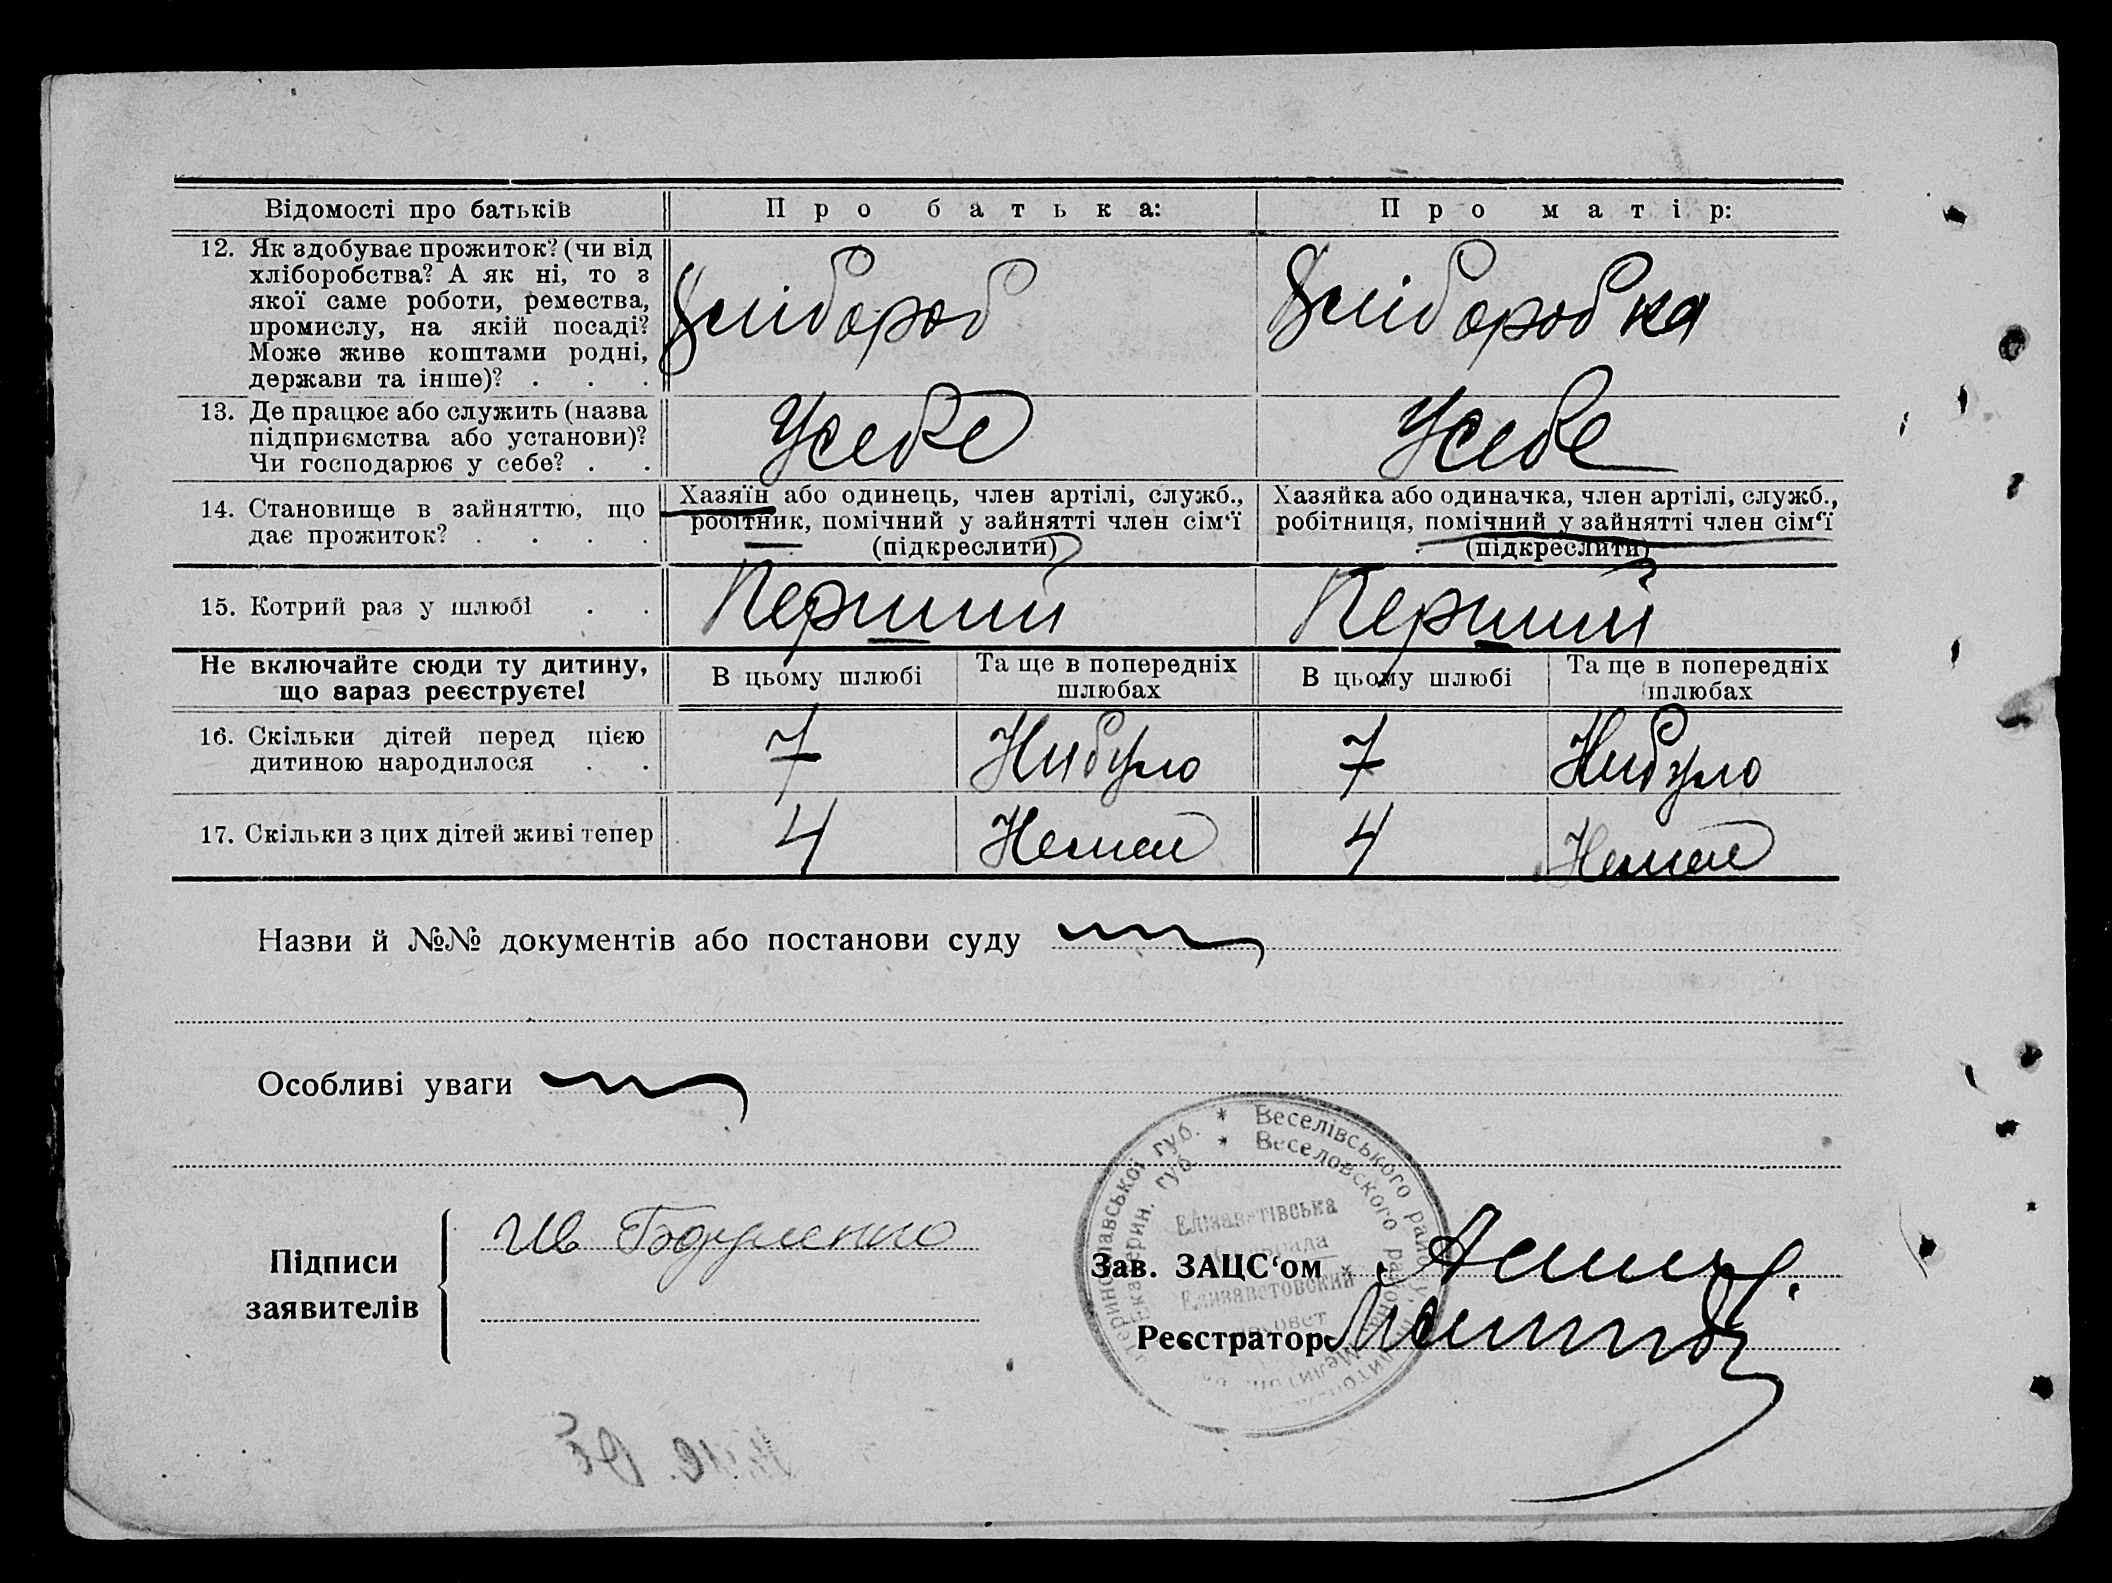 Відомості про батьків
Про батька:
Про матір:
12. Як здобуває прожиток? (чи від
хліборобства? А як ні, то з
якої саме роботи, ремества,
промислу, на якій посаді?
Може живе коштами родні,
держави та інше)? . . .
Хлібороб
Хліборобка
13. Де працює або служить (назва
підприємства або установи)?
Чи господарює у себе? . .
Усебе
Усебе
14. Становище в зайняттю, що
дає прожиток? . . . .
Хазяїн або одинець, член артілі, служб.,
робітник, помічний у зайнятті член сім'ї
(підкреслити)
Хазяйка або одиначка, член артілі, служб.,
робітниця, помічний у зайнятті член сім'ї
(підкреслити)
15. Котрий раз у шлюбі . .
Перший
Перший
Не включайте сюди ту дитину,
що зараз реєструєте!
В цьому шлюбі
Та ще в попередніх
шлюбах
В цьому шлюбі
Та ще в попередніх
шлюбах
16. Скільки дітей перед цією
дитиною народилося . .
7
Нибуло
7
Нибуло
17. Скільки з цих дітей живі тепер
4
Немає
4
Немає
Назви й №№ документів або постанови суду
Особливі уваги
Підписи
заявителів
Ив
Зав. ЗАЦС'ом
Реєстратор
* Веселівського району,
* Веселовского района
губ.
губ.
Елізаветівська
Елизаветовский